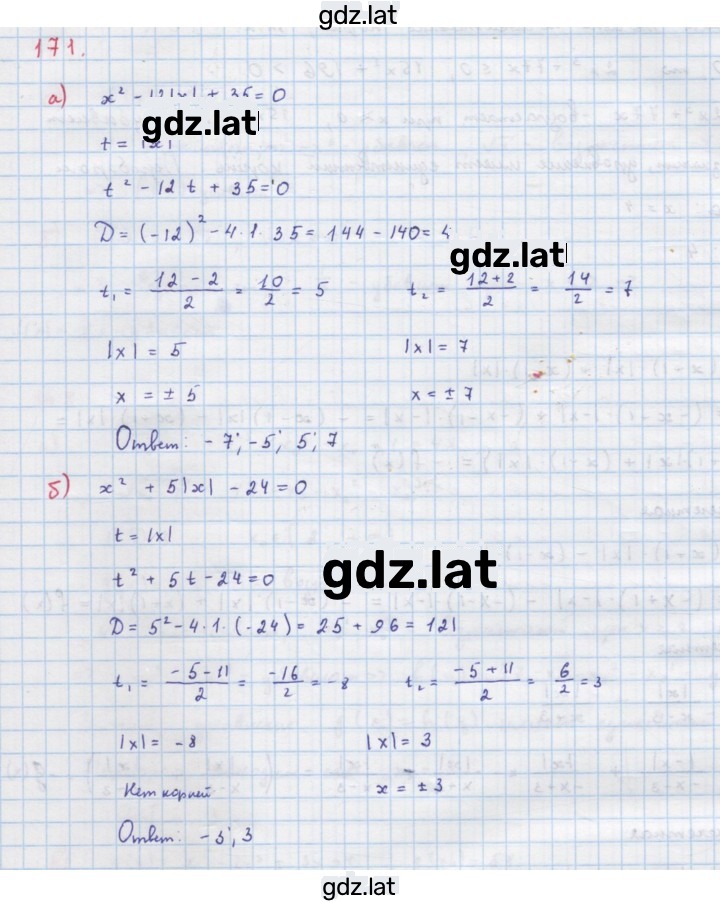 gdz.lat
171.
а) x² - 12|x| + 35 = 0
gdz.lat
t = |x|
t² - 12t + 35 = 0
D = (-12)² - 4·1·35 = 144 - 140 = 4
gdz.lat
t₁ = (12 - 2)/2 = 10/2 = 5 t₂ = (12+2)/2 = 14/2 = 7
|x| = 5 |x| = 7
x = ± 5 x = ± 7
Ответ: -7; -5; 5; 7
б) x² + 5|x| - 24 = 0
t = |x|
gdz.lat
t² + 5t - 24 = 0
D = 5² - 4·1·(-24) = 25 + 96 = 121
t₁ = (-5 - 11)/2 = -16/2 = -8 t₂ = (-5 + 11)/2 = 6/2 = 3
|x| = -8 |x| = 3
Нет корней x = ± 3
Ответ: -3; 3
gdz.lat